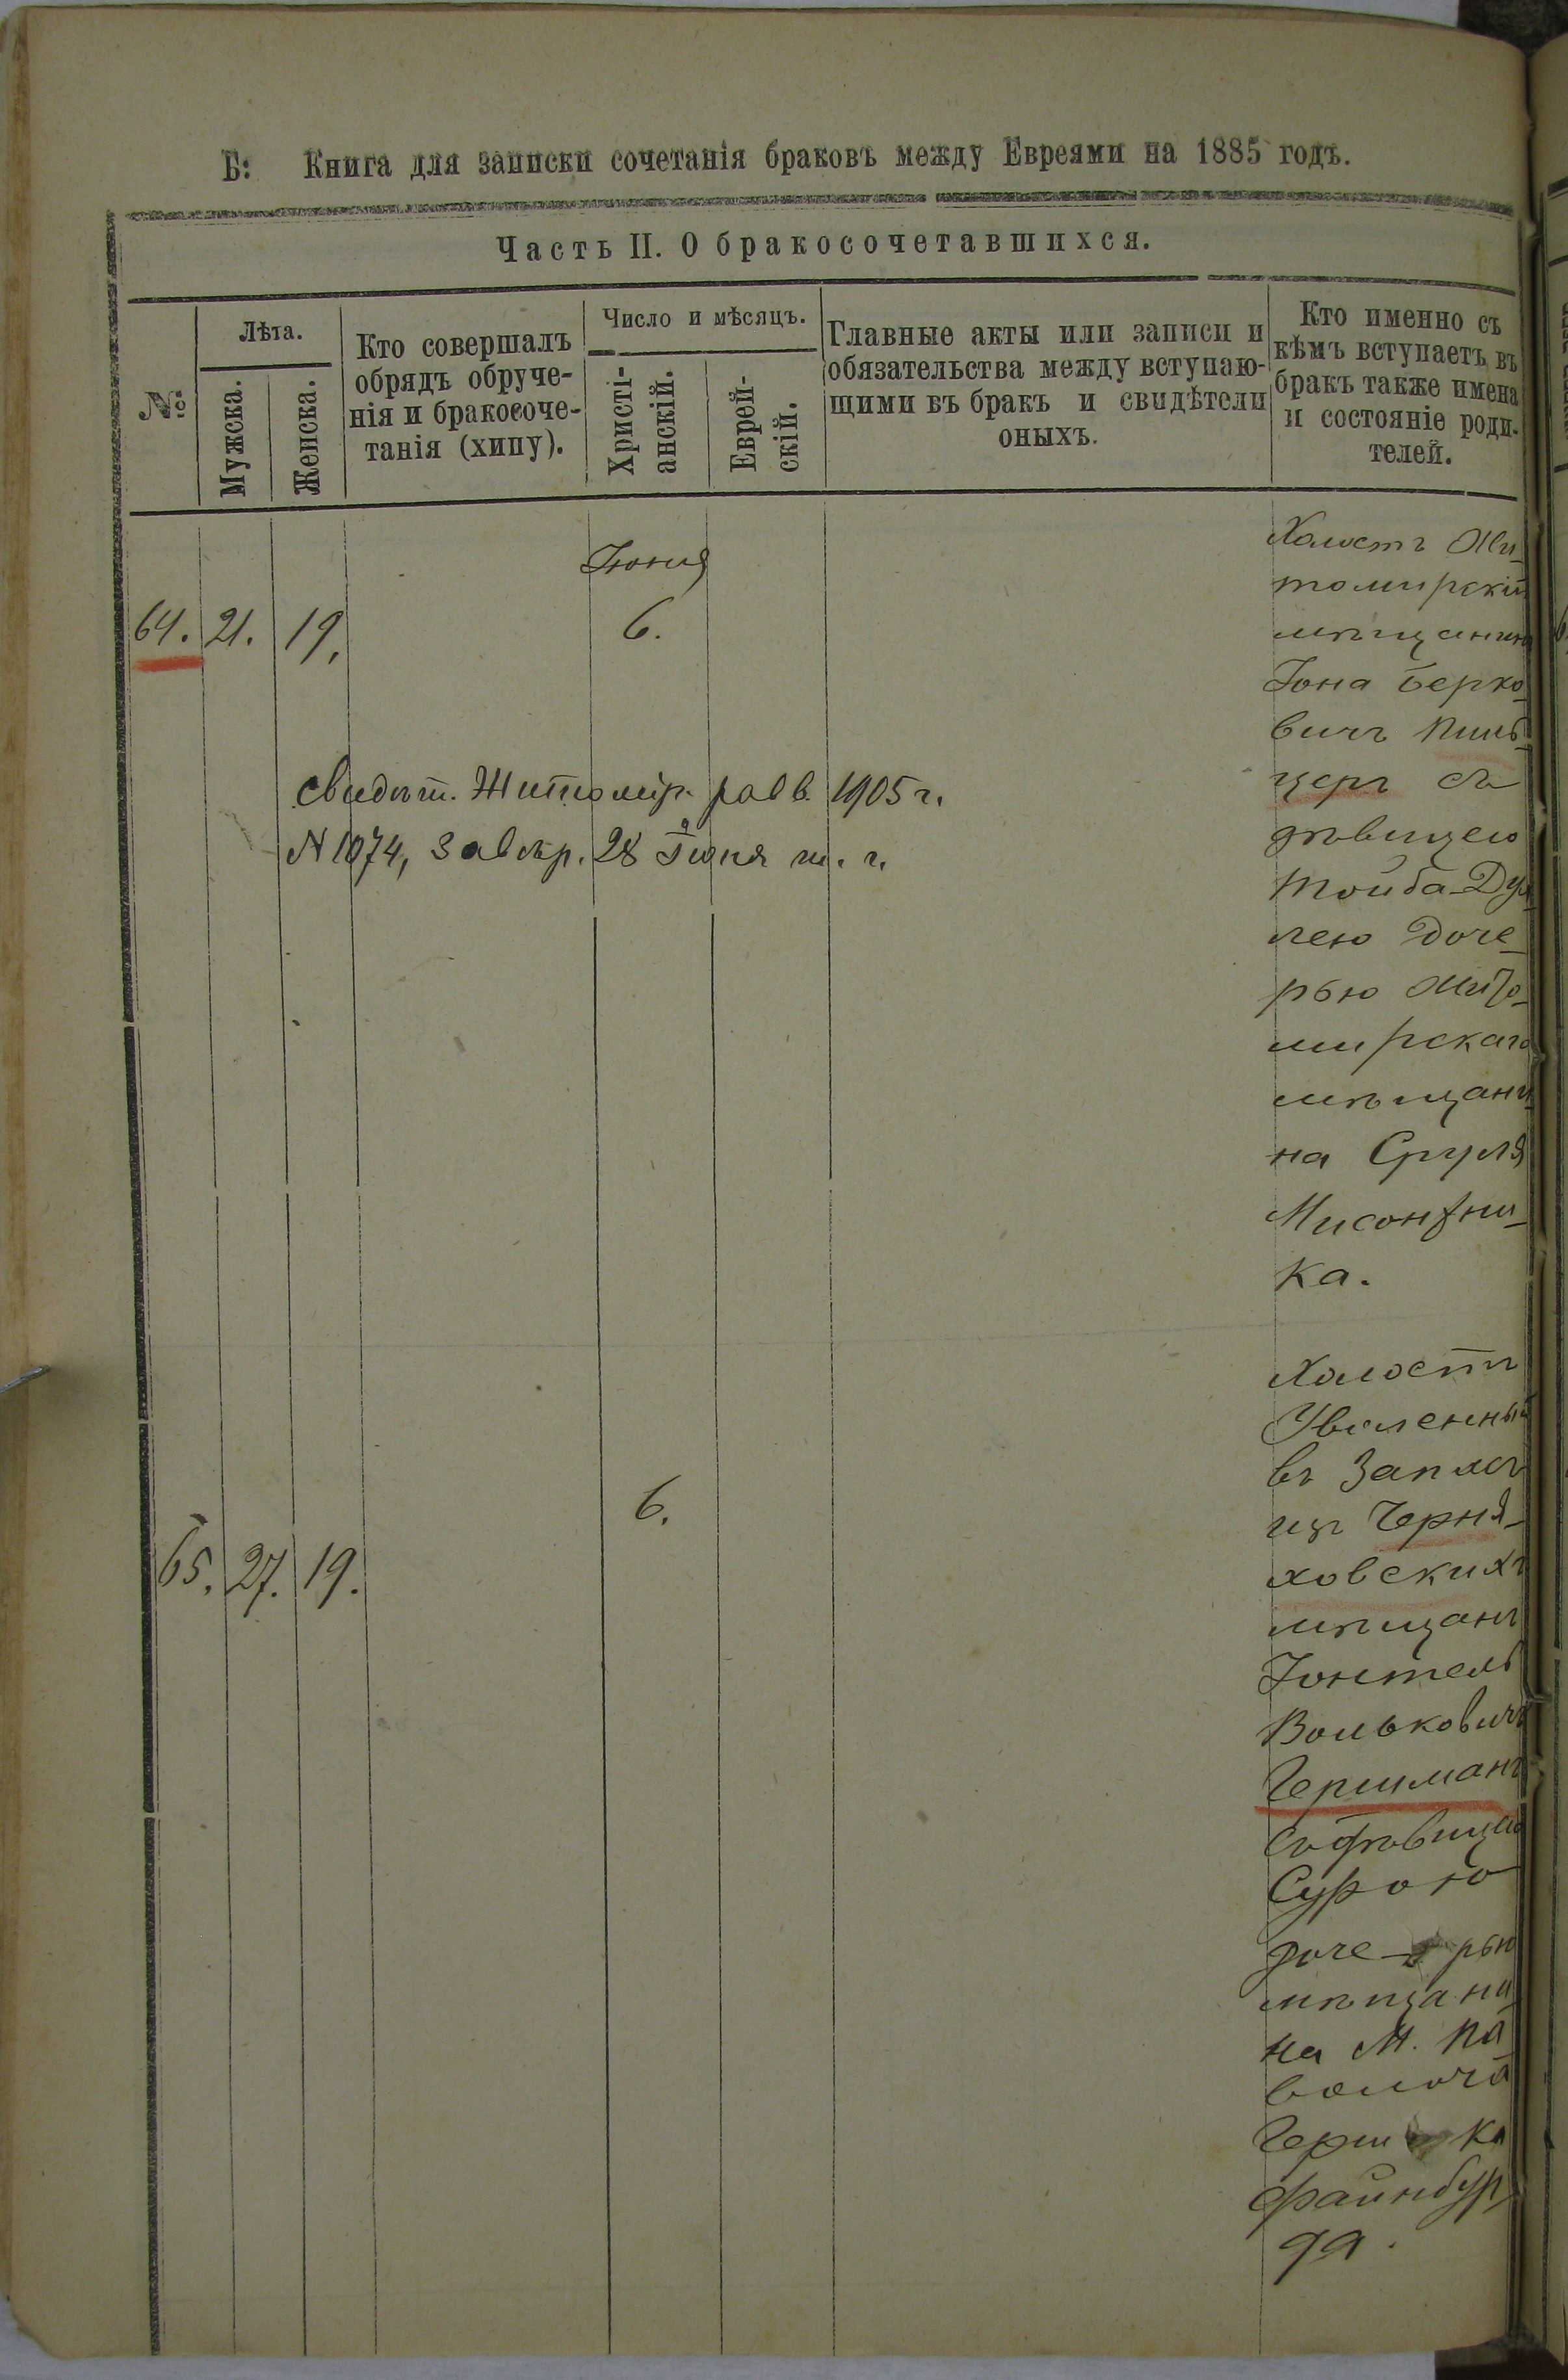 Б: Книга для записки сочетанія браковъ между Евреями на 1885 годъ.
Часть II. О бракосочетавшихся.
№
Лѣта.
Мужска.
Женска.
Кто совершалъ
обрядъ обруче-
нія и бракосоче-
танія (хипу).
Число и мѣсяцъ.
Христі-
анскій.
Еврей-
скій.
Главные акты или записи и
обязательства между вступаю-
щими въ бракъ и свидѣтели
оныхъ.
Кто именно съ
кѣмъ вступаетъ въ
бракъ также имена
и состояніе роди-
телей.
Іюня
64. 21. 19. 6.
Холостъ Жи-
томирскій
мѣщанинъ
Іона Берко-
вичъ Пиль-
церъ съ
дѣвицею
Тойба-Дуд-
лею доче-
рью Жито-
мирскаго
мѣщани-
на Сруля
Мисонжни-
ка.
Свидѣт. Житомір. равв. 1905 г.
№ 1074, завѣр. 28 Іюня т. г.
65. 27. 19. 6.
Холостъ
Уволенный
въ Запасъ
изъ Черня-
ховскихъ
мѣщанъ
Іонтель
Вольковичъ
Гершманъ
съ дѣвицею
Сурою
доче- рью
мѣщани-
на М. Па-
волоча
Герш ка
Файнбур-
га.